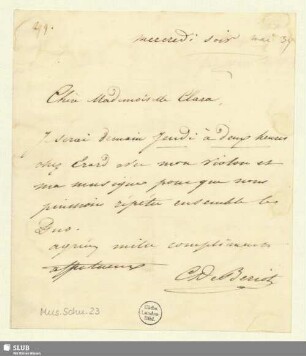 49.
mercredi soir mai 39
Chère Mademoiselle Clara,
Je serai demain Jeudi à deux heures
chez Erard avec mon violon et
ma musique pour que nous
puissions répéter ensemble les
Duo.
agréez mille complimens
affectueux
C. De Beriot
Mus. Schu. 23
SLUB